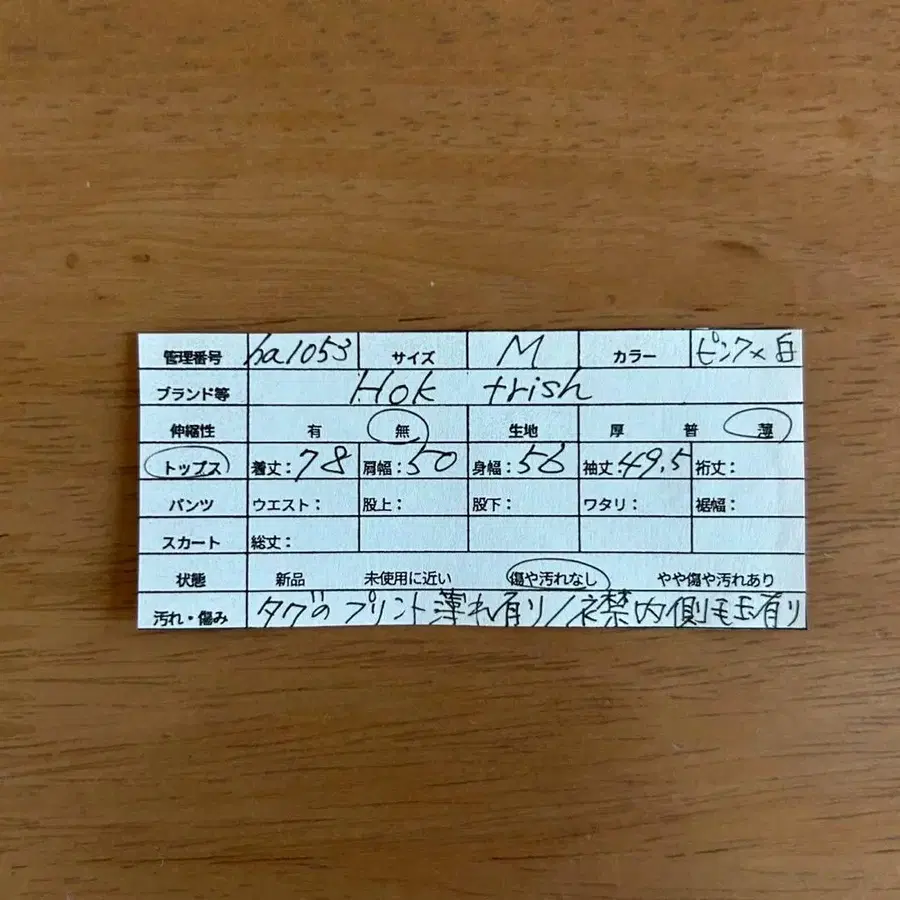 管理番号 ha1053 サイズ M カラー ピンク×白
ブランド等 Hok trish
伸縮性 有 無 生地 厚 普 薄
トップス 着丈：78 肩幅：50 身幅：56 袖丈49.5 裄丈：
パンツ ウエスト： 股上： 股下： ワタリ： 裾幅：
スカート 総丈：
状態 新品 未使用に近い 傷や汚れなし やや傷や汚れあり
汚れ・傷み タグのプリント薄れ有り/衣襟内側毛玉有り